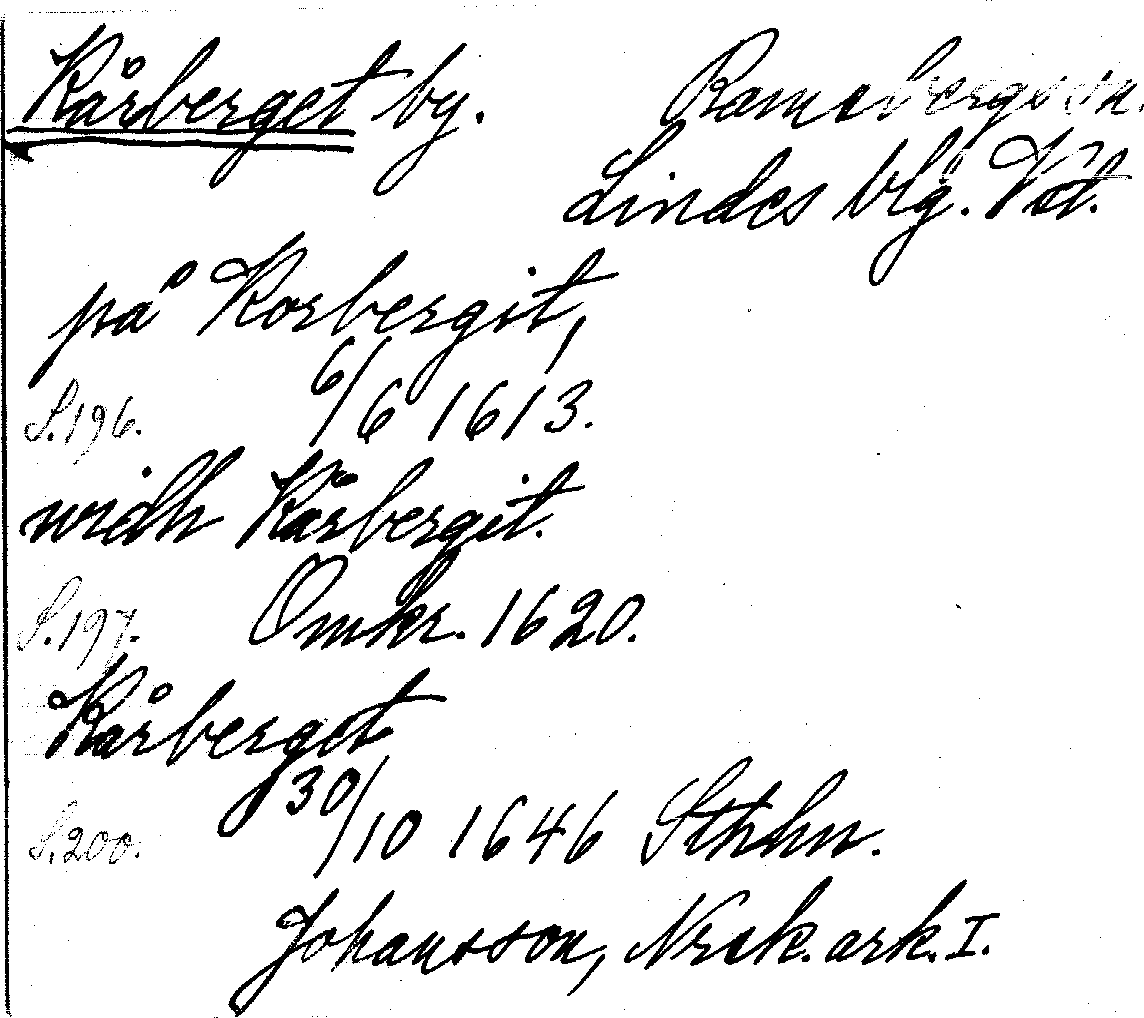 Kårberget by. Ramsbergs sn.
Lindes blg. Vstm.
på Korbergit,
S.196. 6/6 1613.
widh Kårbergit.
S.197. Omkr. 1620.
Kårberget
S.200. 30/10 1646 Sthlm.
Johansson, Norask. ark. I.